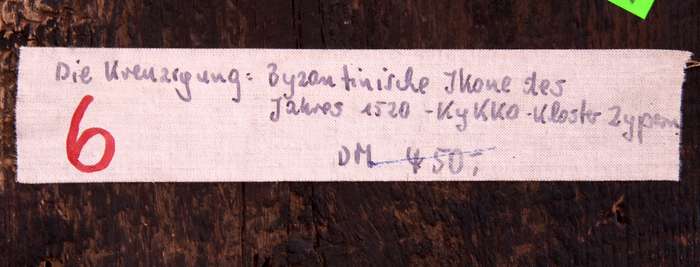 Die Kreuzigung: Byzantinische Ikone des
Jahres 1520 - KyKKO - Kloster Zypern
6
DM 450,-